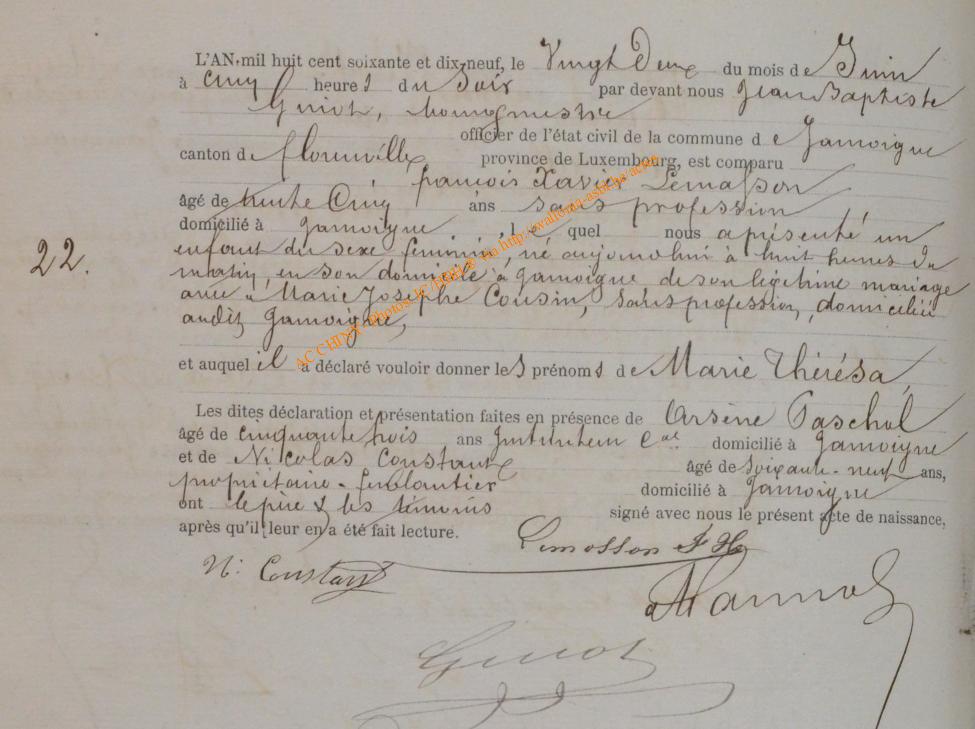 L'AN mil huit cent soixante et dix-neuf, le Vingt Deux du mois de Juin
à Cinq heures du Soir par devant nous Jean Baptiste
Guiot, bourgmestre
officier de l'état civil de la commune de Jamoigne
canton de florenville province de Luxembourg, est comparu
françois Xavier Lemasson
âgé de trente Cinq ans sans profession
domicilié à Jamoigne, lequel nous a présenté un
22.
enfant du sexe féminin, né aujourd'hui à huit heures du
matin, en son domicile à Jamoigne de son légitime mariage
avec Marie Josephe Cousin, sans profession, domiciliée
audit Jamoigne,
AC CHINY photos via http://wallonia-asbl.be/actes
et auquel il a déclaré vouloir donner les prénoms de Marie Thérésa,
Les dites déclaration et présentation faites en présence de Arsène Paschal
âgé de cinquante trois ans Instituteur Cal domicilié à Jamoigne
et de Nicolas Constant âgé de soixante-neuf ans,
propriétaire - ferblantier domicilié à Jamoigne
ont le père & les témoins signé avec nous le présent acte de naissance,
après qu'il leur en a été fait lecture.
Lemosson F
N: Constant
Guiot